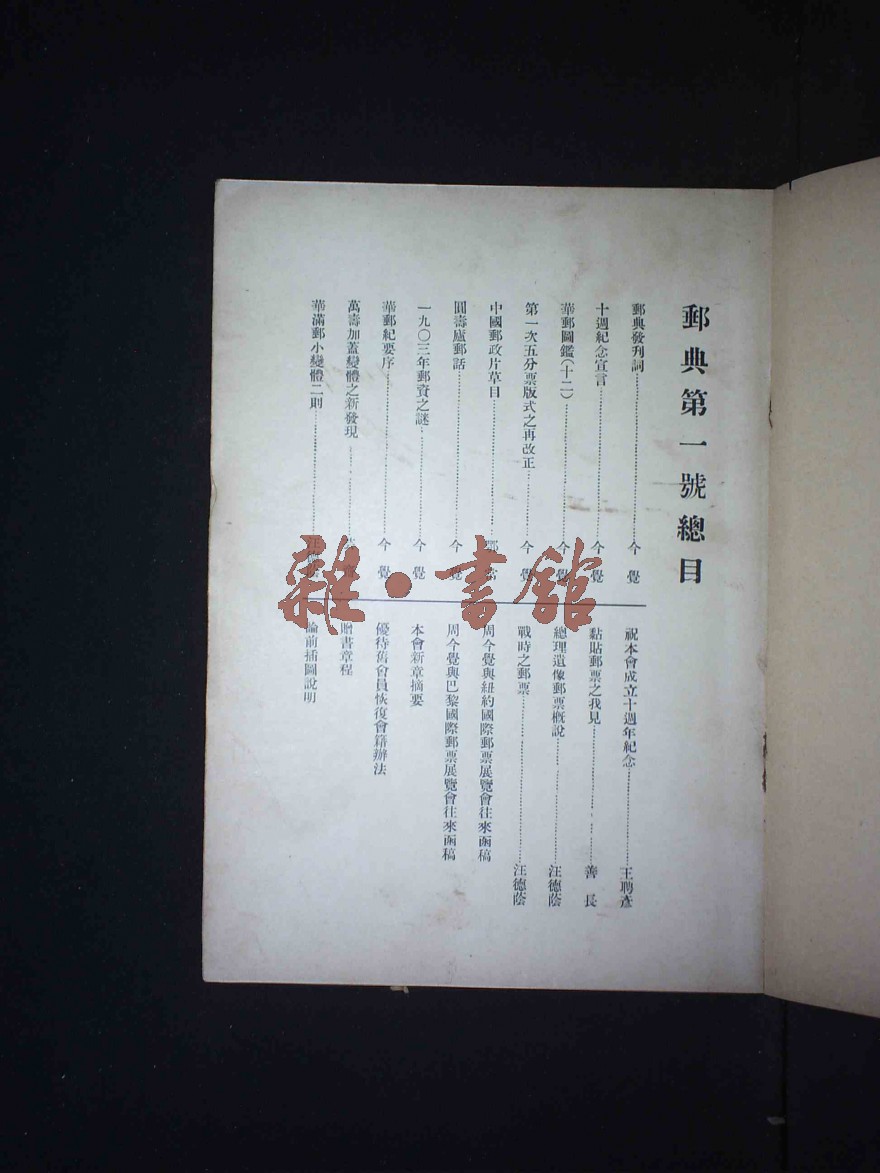 郵典第一號總目
郵典發刊詞 今覺
十週紀念宣言 今覺
華郵圖鑑(十二) 今覺
第一次五分票版式之再改正 今覺
中國郵政片草目
圓壽廬郵話 今覺
一九〇三年郵資之謎 今覺
華郵紀要序 今覺
萬壽加蓋變體之新發現
華滿郵小變體二則
祝本會成立十週年紀念 王聘彥
黏貼郵票之我見 善長
總理遺像郵票概說 汪德蔭
戰時之郵票 汪德蔭
周今覺與紐約國際郵票展覽會往來函稿
周今覺與巴黎國際郵票展覽會往來函稿
本會新章摘要
優待舊會員恢復會籍辦法
贈書章程
論前插圖說明
雜·書館